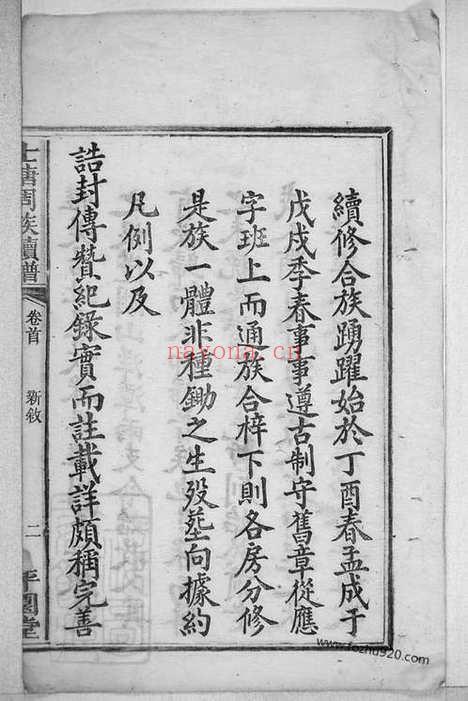 續修合族踴躍始於丁酉春孟成于
戊戌季春事事遵古制守舊章從應
字班上而通族合梓下則各房分修
是族一體非種鋤之生殁塟向據約
凡例以及
誥封傳贊紀錄實而註載詳頗稱完善
塘周族續譜
卷首
新敘
二
nayona.cn
www.fozhu920.com